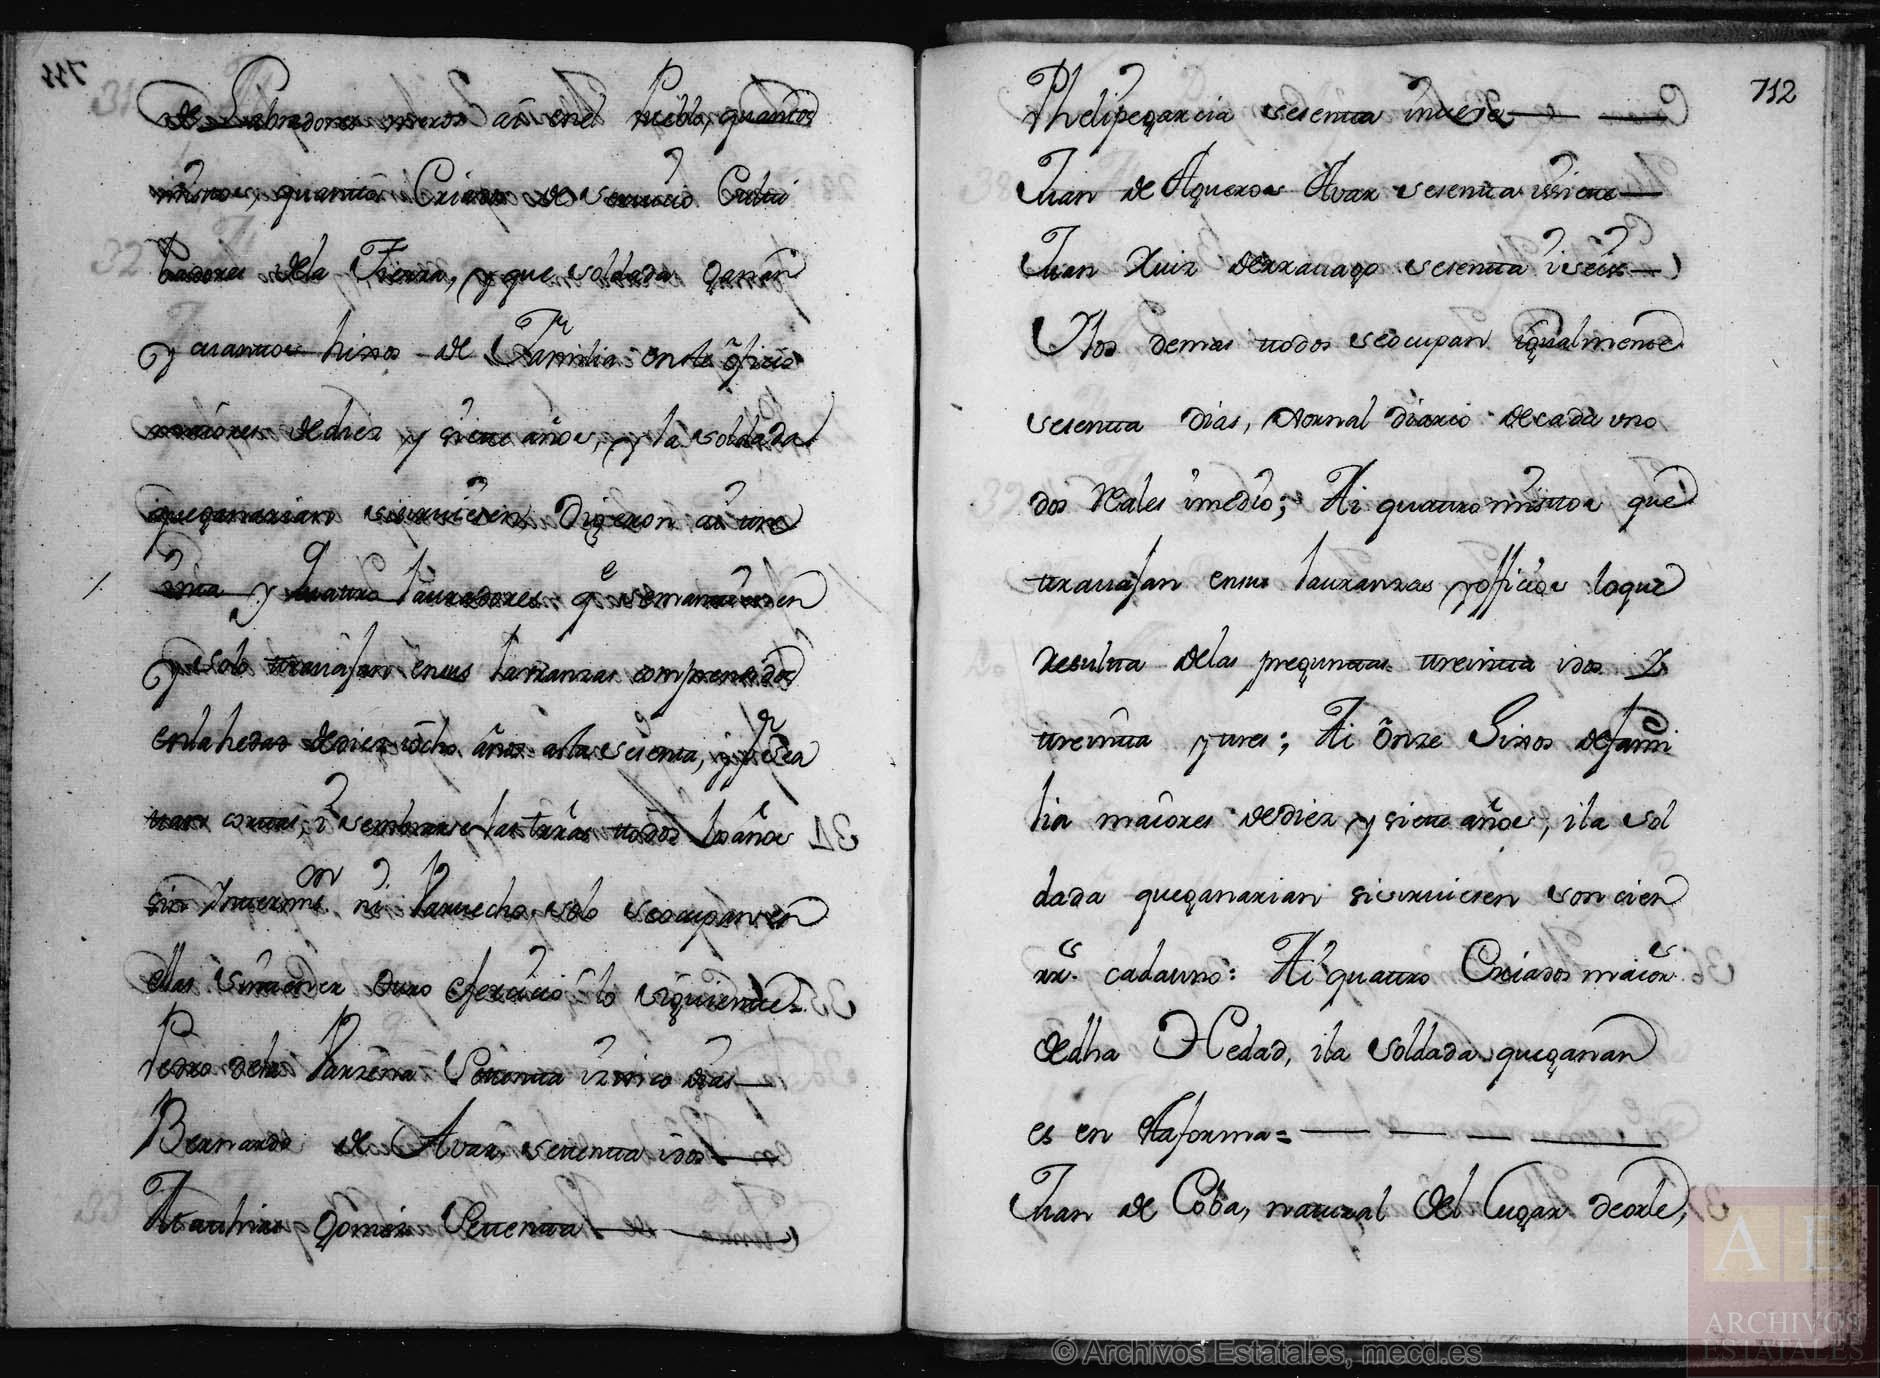 de Labradores meros ai enel Pueblo, quantos
mistos, quantos Criados de servicio Culti
badores dela Tierra, y que soldada ganan
y cuantos hixos de Familia en este oficio
maiores dediez y siete años, y la soldada
queganarian sisirviesen Dixeron ai tre
inta y quatro lauradores qe semantienen
y solo travajan ensus lauranzas comprendidos
enlahedad dediez iocho años asta sesenta, y pr Sea
las tierras todos los años
sin ni Varvecho, solo seocupan en
ellas sintener otro efercicio lo siguiente=
Pedro dela Setenta izinco dias
Bernardo de Avar, setenta idos
Gomez Setenta
712
Phelipegarcia sesenta inueve
Juan de Agueros Avar sesenta isiete
Juan Ruiz sesenta iseis
Ylos demas todos seocupan igualmente
sesenta Dias, Jornal diario decada vno
dos Reales imedio; Ai quatro mistos que
travajan ensus lauranzas yofficios loque
resulta delas preguntas treinta idos y
treinta ytres; Ai Onze Hixos defami
lia maiores dediez y siete años, ila sol
dada queganarian sisirviesen son cien
rrs. cadauno: Ai quatro Criados maiores
dedha Hedad, ila Soldada queganan
es en staforma=
Juan de Coba, natural del Lugar deorle,
© Archivos Estatales, mecd.es
AE
ARCHIVOS
ESTATALES